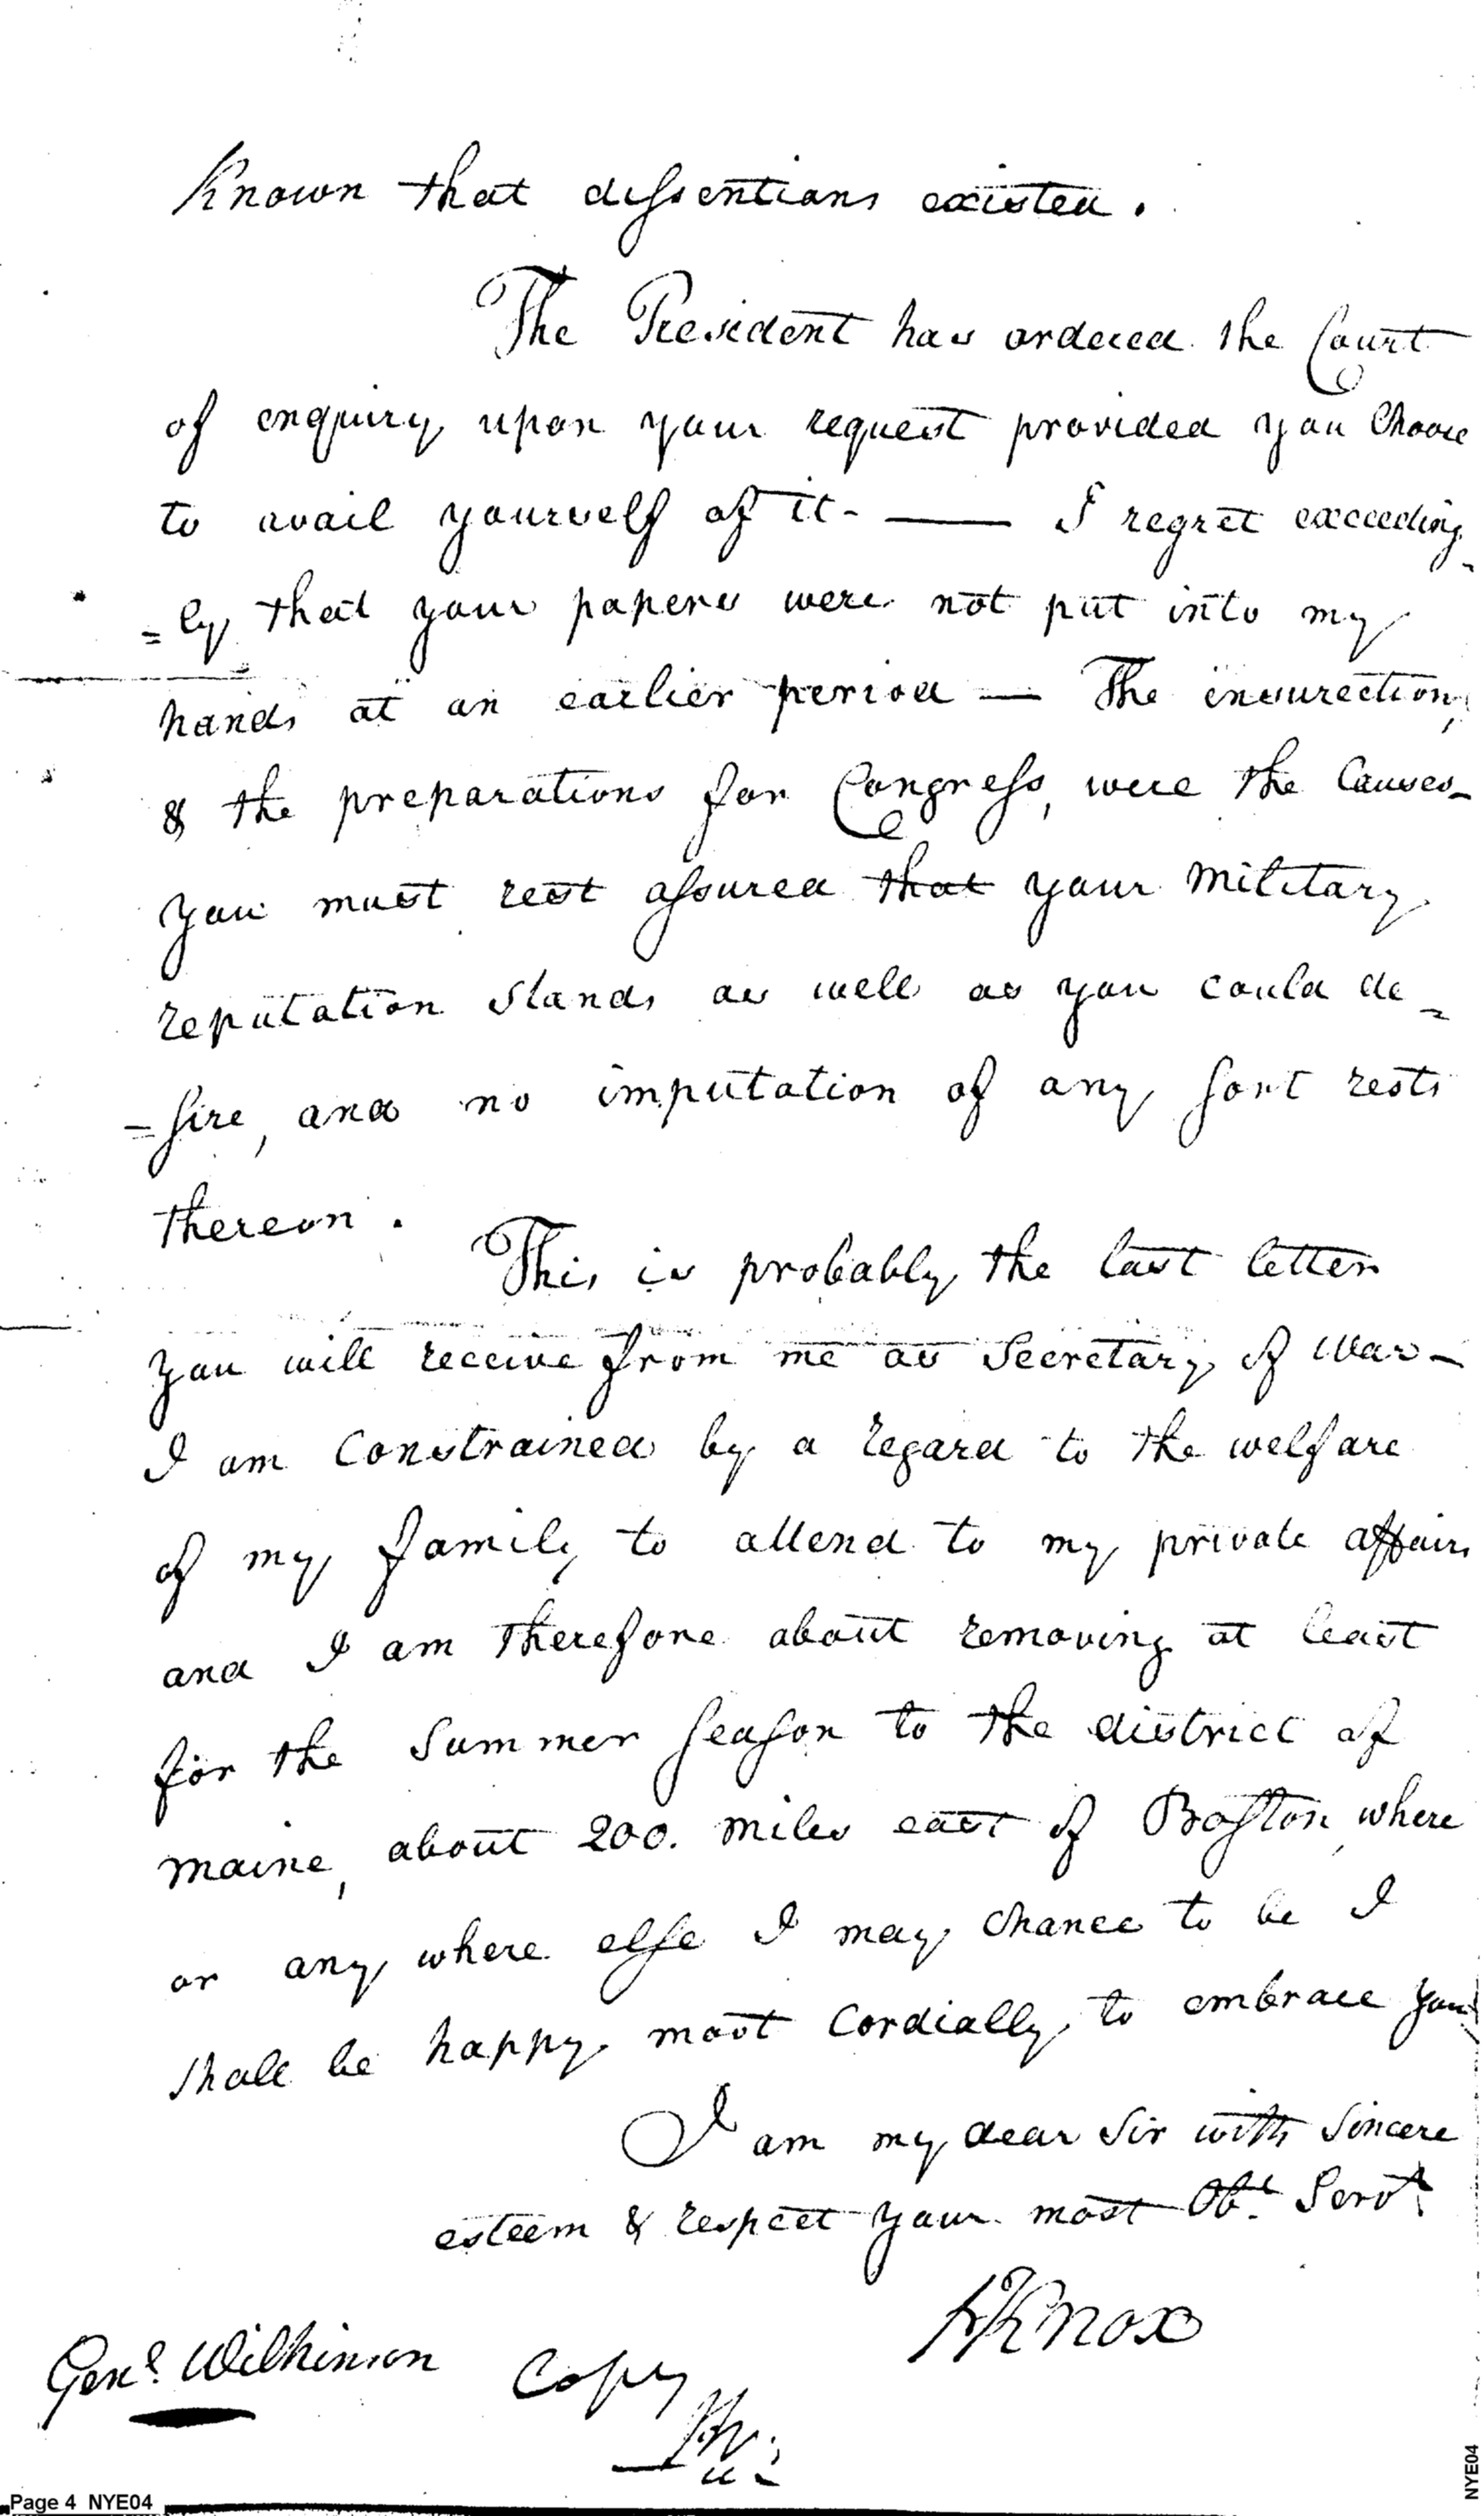 Known that dissentions existed.
The President has ordered the Court
of enquiry upon your request provided you Choose
to avail yourself of it - — I regret exceeding
=ly that your papers were not put into my
hands at an earlier period — The insurection,
& the preparations for Congress, were the Causes -
you must rest assured that your Military
reputation Stands as well as you could de=
=sire, and no imputation of any sort rests
thereon.
This is probably the last letter
you will receive from me as Secretary of War -
I am Constrained by a regard to the welfare
of my family to attend to my private affairs
and I am therefore about removing at least
for the Summer season to the district of
maine, about 200. miles east of Boston, where
or any where else I may chance to be I
shall be happy most Cordially to embrace you
I am my dear Sir with Sincere
esteem & respect your most Obt. Servt.
HKnox
Genl. Wilkinson Copy
Page 4 NYE04
NYE04